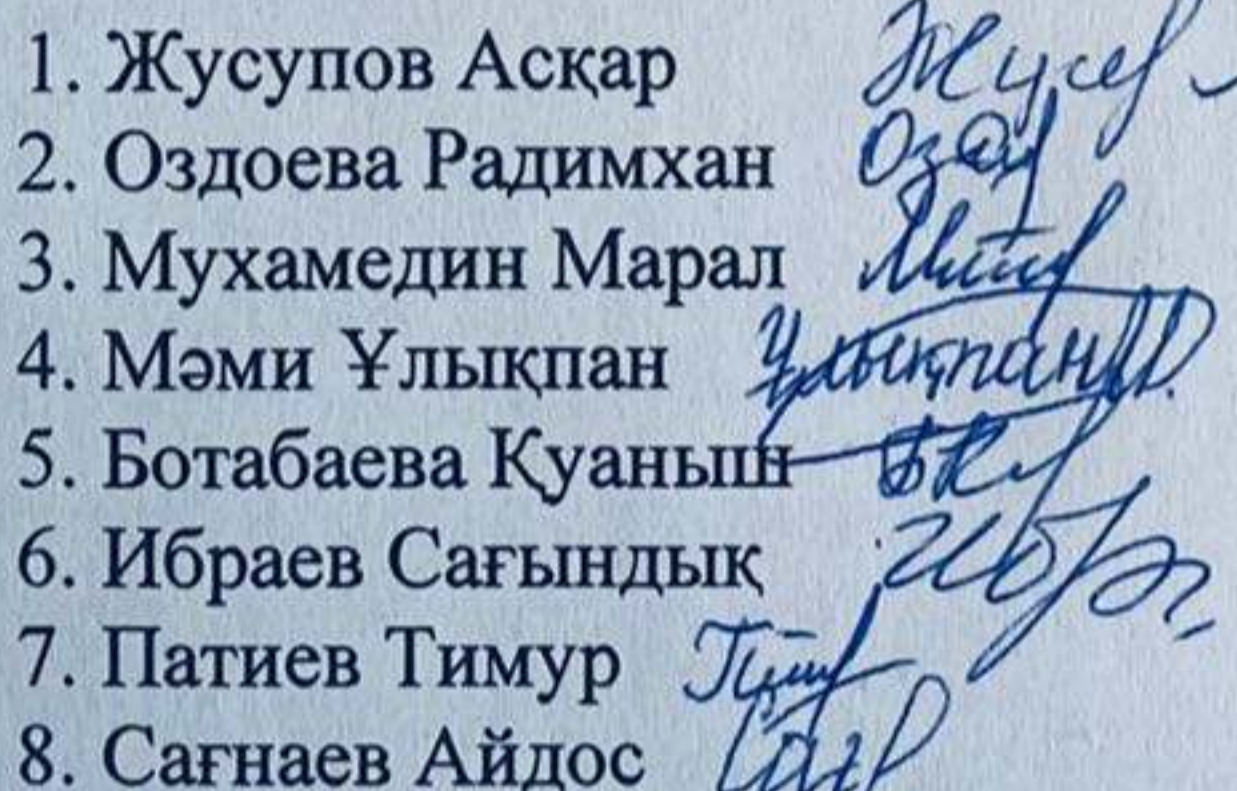 1. Жусупов Асқар
2. Оздоева Радимхан
3. Мухамедин Марал
4. Мәми Ұлықпан Ұлықпан
5. Ботабаева Қуаныш
6. Ибраев Сағындық
7. Патиев Тимур
8. Сағнаев Айдос